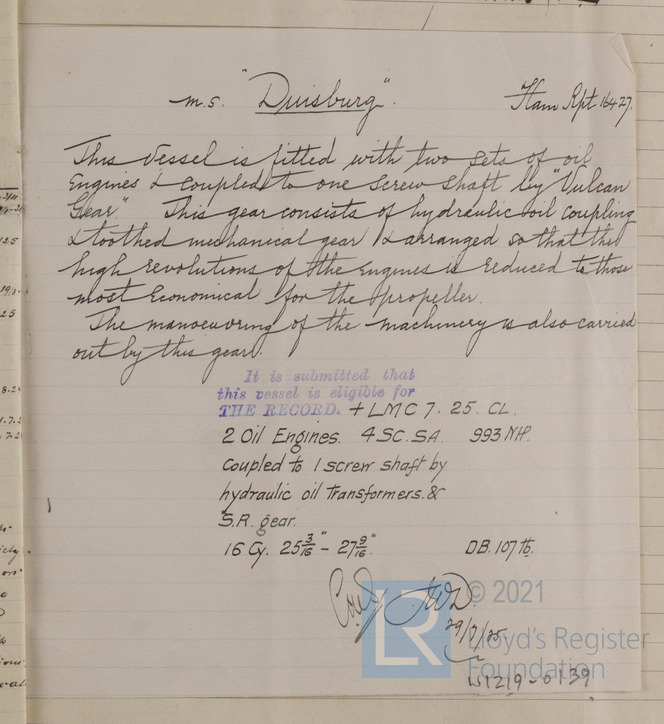 m.s. "Duisburg".
Ham Rpt 16427.
This vessel is fitted with two sets of oil
Engines & coupled to one screw shaft by "Vulcan
Gear." This gear consists of hydraulic oil coupling
& toothed mechanical gear & arranged so that the
high revolutions of the Engines is reduced to those
most Economical for the propeller.
The manoeuvring of the machinery is also carried
out by this gear.
It is submitted that
this vessel is eligible for
THE RECORD. + LMC 7. 25. CL.
2 Oil Engines. 4SC. SA. 993 NH.
Coupled to 1 screw shaft by
hydraulic oil transformers. &
S.R. gear.
16 Cy. 25 3/16" - 27 9/16" DB. 107 lb.
29/7/25
LR
© 2021
Lloyd's Register
Foundation
W1219-0139